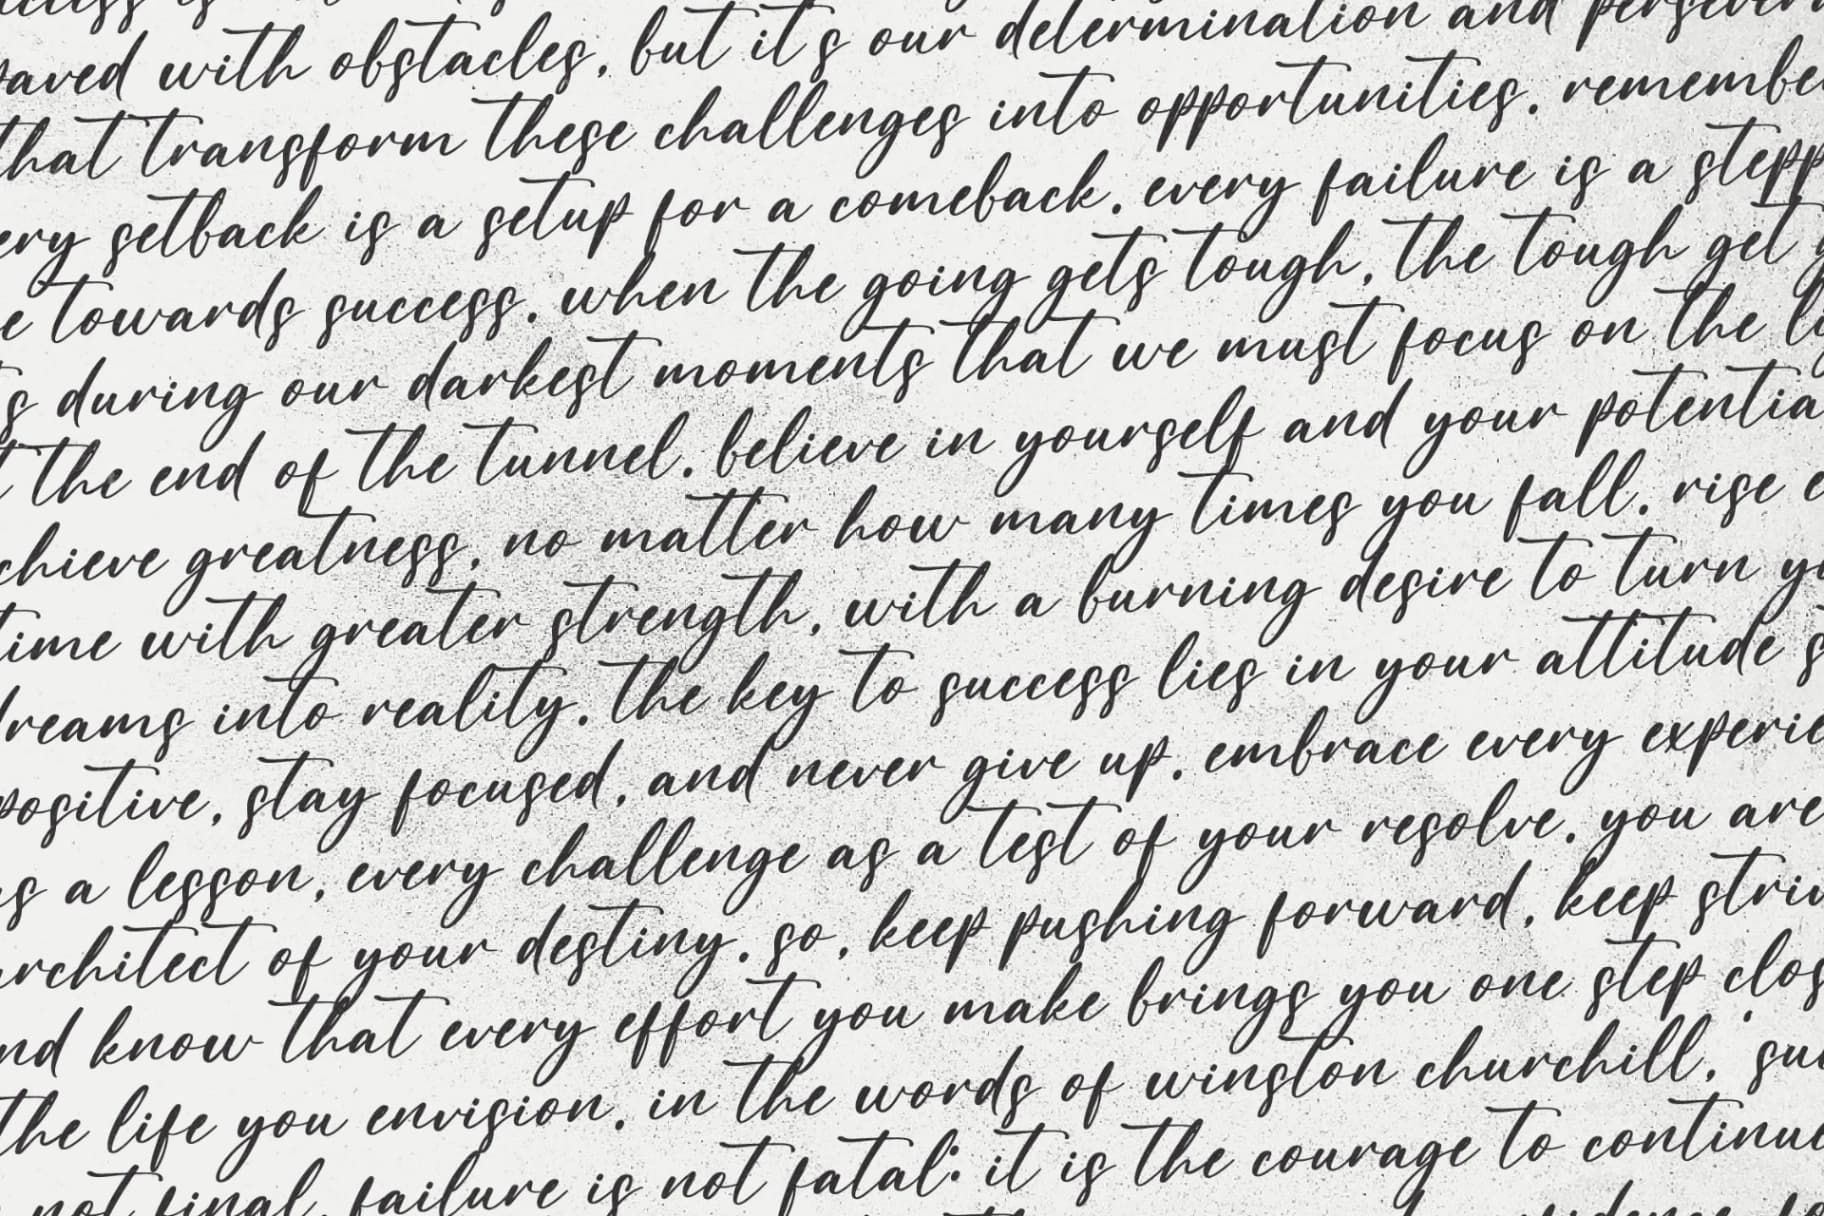 paved with obstacles, but it's our determination and
that transform these challenges into opportunities. remember
ery setback is a setup for a comeback. every failure is a stepp
e towards success. when the going gets tough, the tough get g
s during our darkest moments that we must focus on the li
t the end of the tunnel. believe in yourself and your potentia
chieve greatness. no matter how many times you fall, rise e
time with greater strength, with a burning desire to turn yo
dreams into reality. the key to success lies in your attitude s
positive, stay focused, and never give up. embrace every experie
as a lesson, every challenge as a test of your resolve. you are
architect of your destiny. so, keep pushing forward, keep striv
nd know that every effort you make brings you one step clos
the life you envision. in the words of winston churchill, 'suc
not final, failure is not fatal: it is the courage to continue